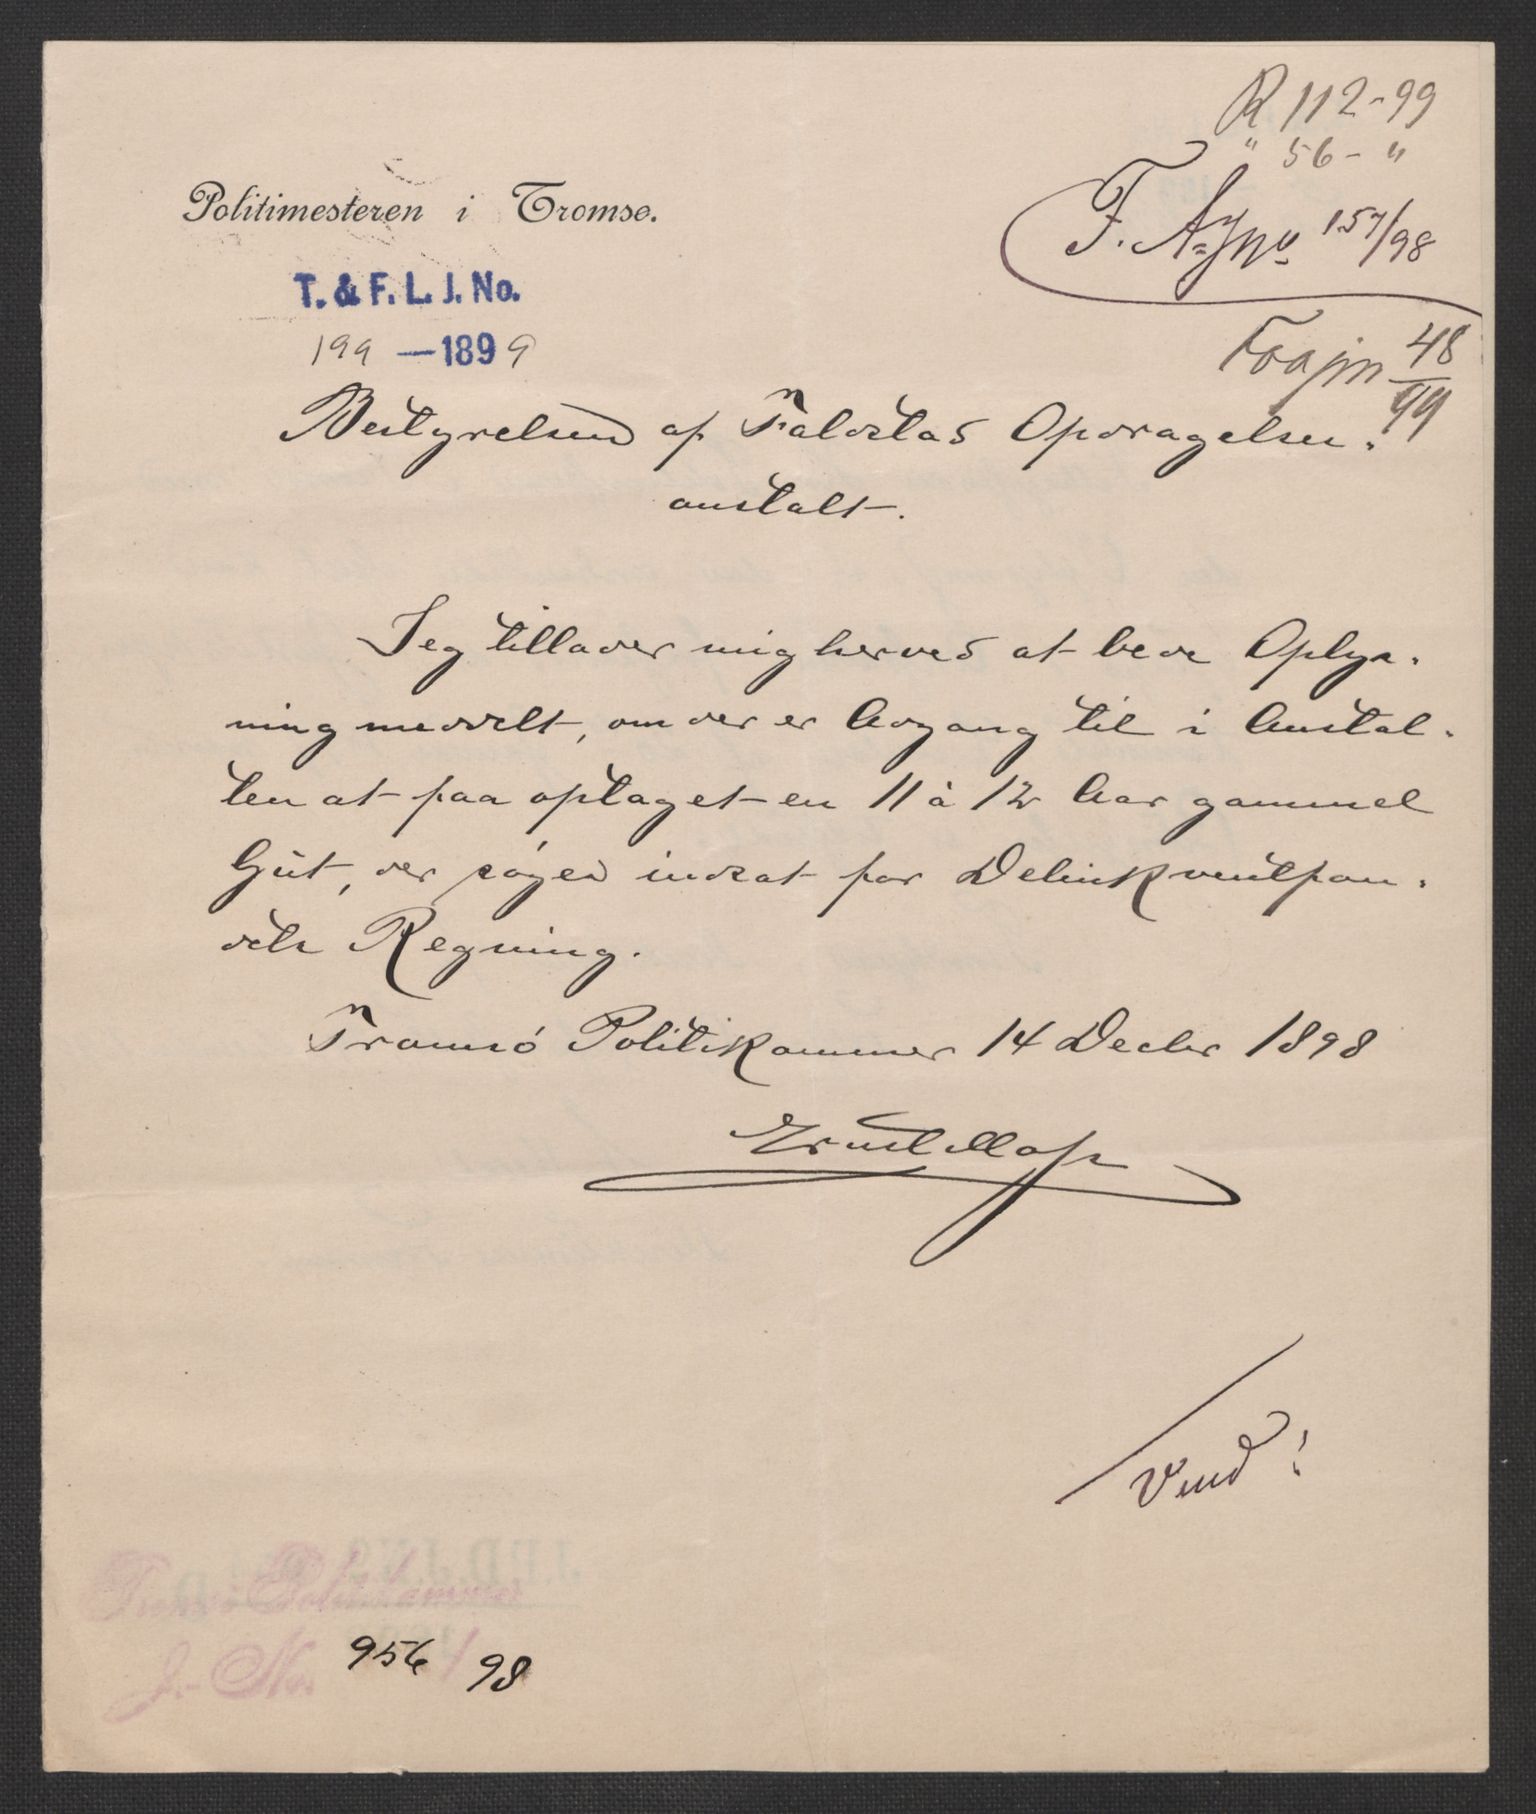 R 112-99
" 56- "
Politimesteren i Tromsø.
F. A. Jno 157/98
T. & F. L. J. No.
199 —1899
Foajn 48/99
Bestyrelsen af Falstad Opdragelses-
anstalt.
Jeg tillader mig herved at bede Oplys-
ning meddelt, om der er Adgang til i Anstal-
ten at faa optaget en 11 à 12 Aar gammel
Gut, der søges indsat for Delinkventfon-
dets Regning.
Tromsø Politikammer 14 Decbr 1898
Vend!
Tromsø Politikammer
J. No. 956/98